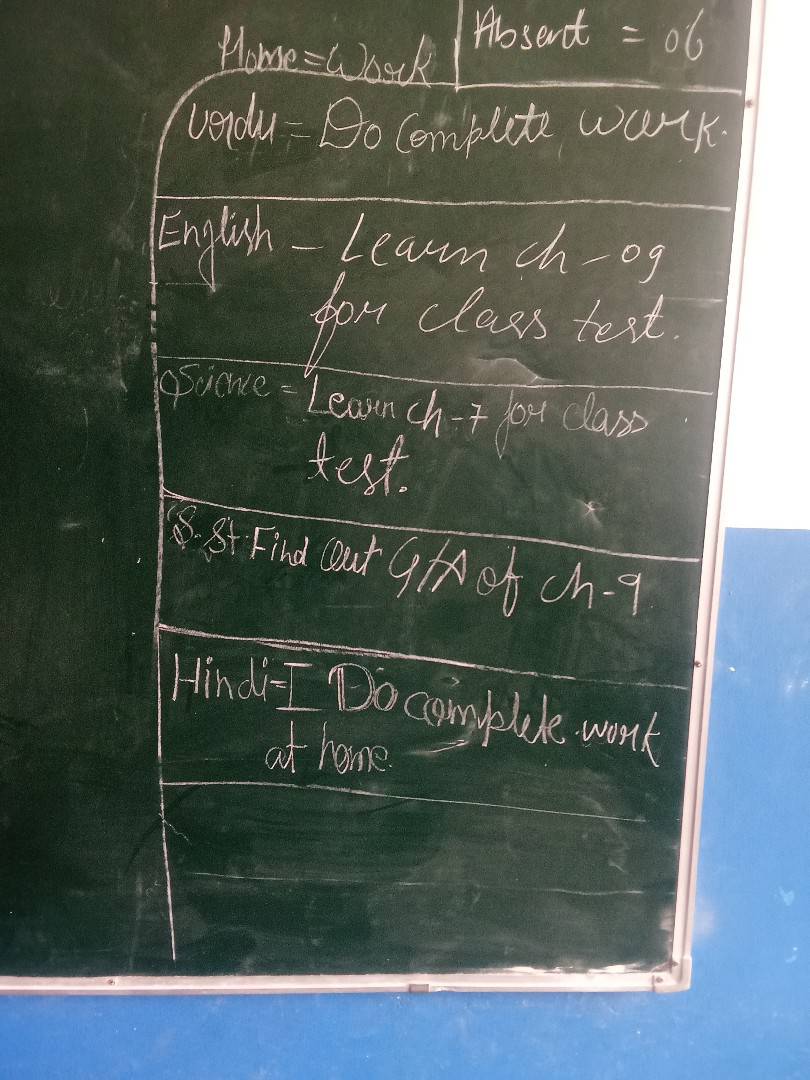 Home=Work
Absent = 06
Uordu = Do Complete work.
English - Learn ch-09
for class test.
Science = Learn ch-7 for class
test.
S.St. Find Out Q/A of ch-9
Hindi=I Do complete work
at home.